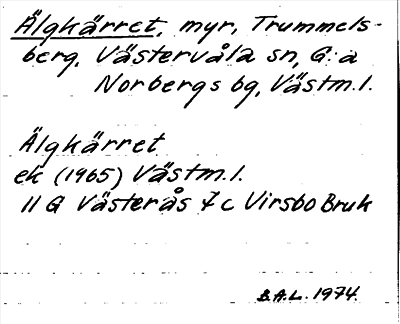 Älgkärret, myr, Trummels-
berg, Västervåla sn, G:a
Norbergs bg, Västm.l.
Älgkärret
ek (1965) Västm.l.
11 G Västerås 7 c Virsbo Bruk
B.A.L. 1974